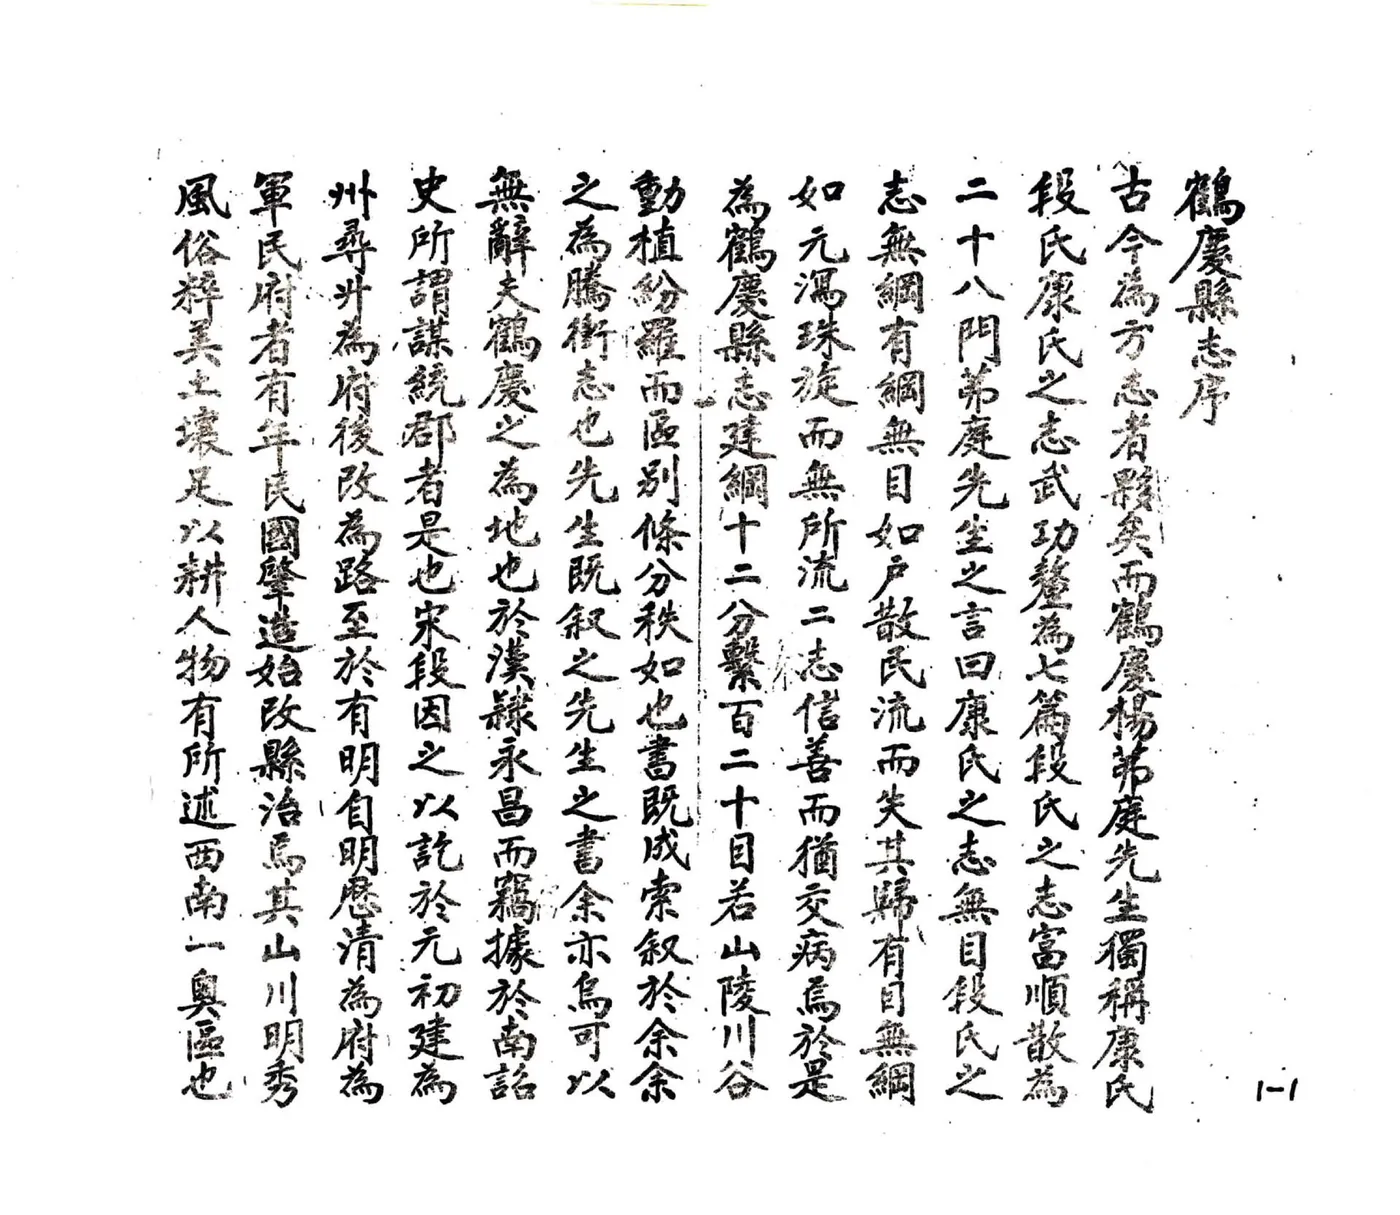 鶴慶縣志序
古今為方志者夥矣而鶴慶楊茀庭先生獨稱康氏
段氏康氏之志武功釐為七篇段氏之志富順散為
二十八門茀庭先生之言曰康氏之志無目段氏之
志無綱有綱無目如戶散民流而失其歸有目無綱
如元瀉珠旋而無所流二志信善而猶交病焉於是
為鶴慶縣志建綱十二分繫百二十目若山陵川谷
動植紛羅而區別條分秩如也書既成索叙於余余
之為騰衝志也先生既叙之先生之書余亦烏可以
無辭夫鶴慶之為地也於漢隸永昌而竊據於南詔
史所謂謀統郡者是也宋段因之以訖於元初建為
州尋升為府後改為路至於有明自明歷清為府為
軍民府者有年民國肇造始改縣治焉其山川明秀
風俗粹美土壤足以耕人物有所述西南一奧區也
1-1